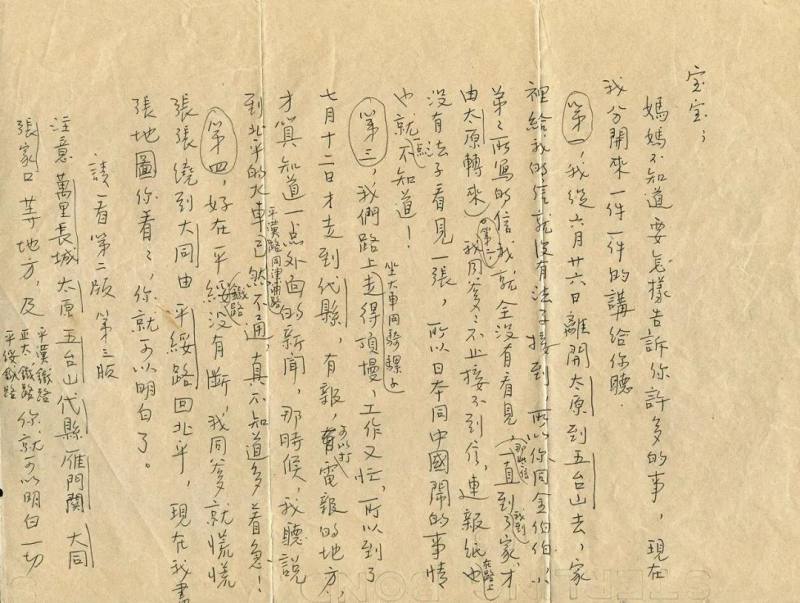 宝宝，
媽媽不知道要怎樣告訴你許多的事，現在
我分開來一件一件的講給你聽．
第一，我從六月廿六日離開太原到五台山去，家
裡給我的信就沒有法子接到，所以你同金伯伯，小
弟弟所寫的信我就全沒有看見（那些信一直到我到了家，才
由太原轉來）第二，我同爹爹不止接不到信，連報紙在路上也
沒有法子看見一張，所以日本同中國鬧的事情
也就一點不知道！
第三，我們路上坐大車同騎騾子走得頂慢，工作又忙，所以到了
七月十二日才走到代縣，有報，可以打電報的地方，
才算知道一点外面的新聞，那時候，我聽說
到北平的火車平漢路同津浦路已然不通，真不知道多着急！
第四，好在平綏鐵路沒有斷，我同爹就慌慌
張張繞到大同由平綏路回北平，現在我畫
張地圖你看了，你就可以明白了。
請看第二版 第三版
注意萬里長城太原五台山代縣雁門關 大同
張家口等地方，及平漢鐵路 正太鐵路 平綏鐵路 你就可以明白一切